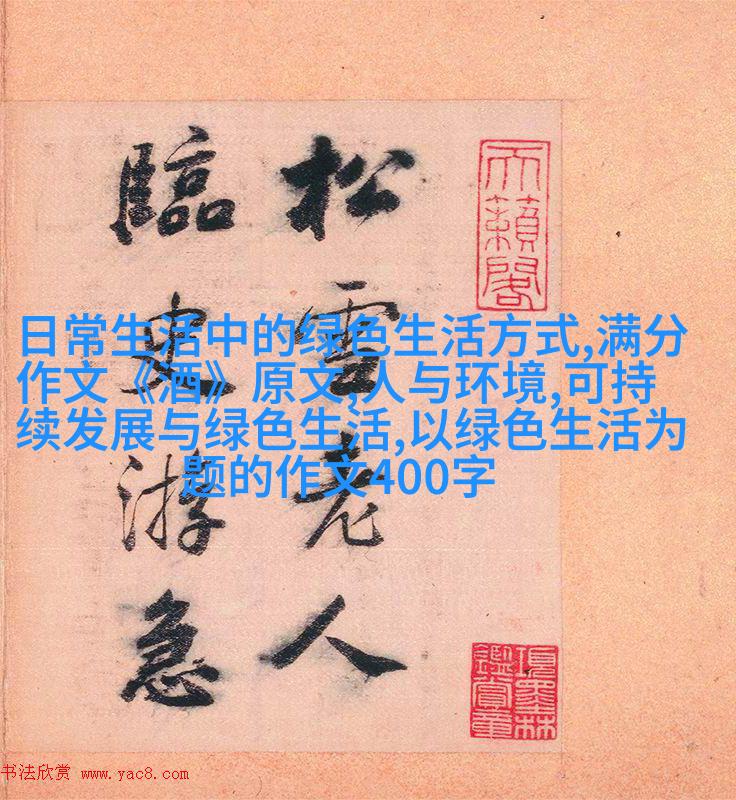 松雪老人
臨史游急
天籟閣
日常生活中的绿色生活方式,满分
作文《酒》原文,人与环境,可持
续发展与绿色生活,以绿色生活为
题的作文400字
項墨林
鑑賞章
书法欣赏 www.yac8.com